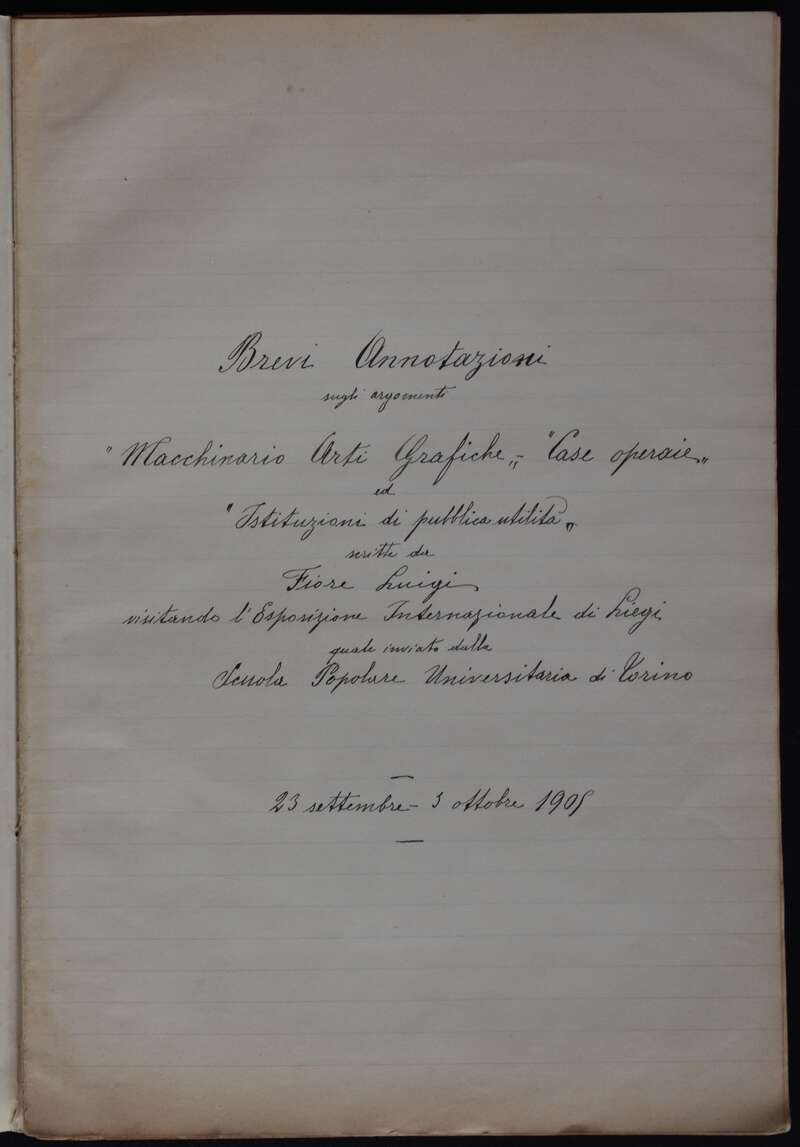 Brevi Annotazioni
sugli argomenti
"Macchinario Arti Grafiche„ - "Case operaie„
ed
"Istituzioni di pubblica utilità„
scritte da
Fiore Luigi
visitando l'Esposizione Internazionale di Liegi
quale inviato dalla
Scuola Popolare Universitaria di Torino
23 settembre - 3 ottobre 1905